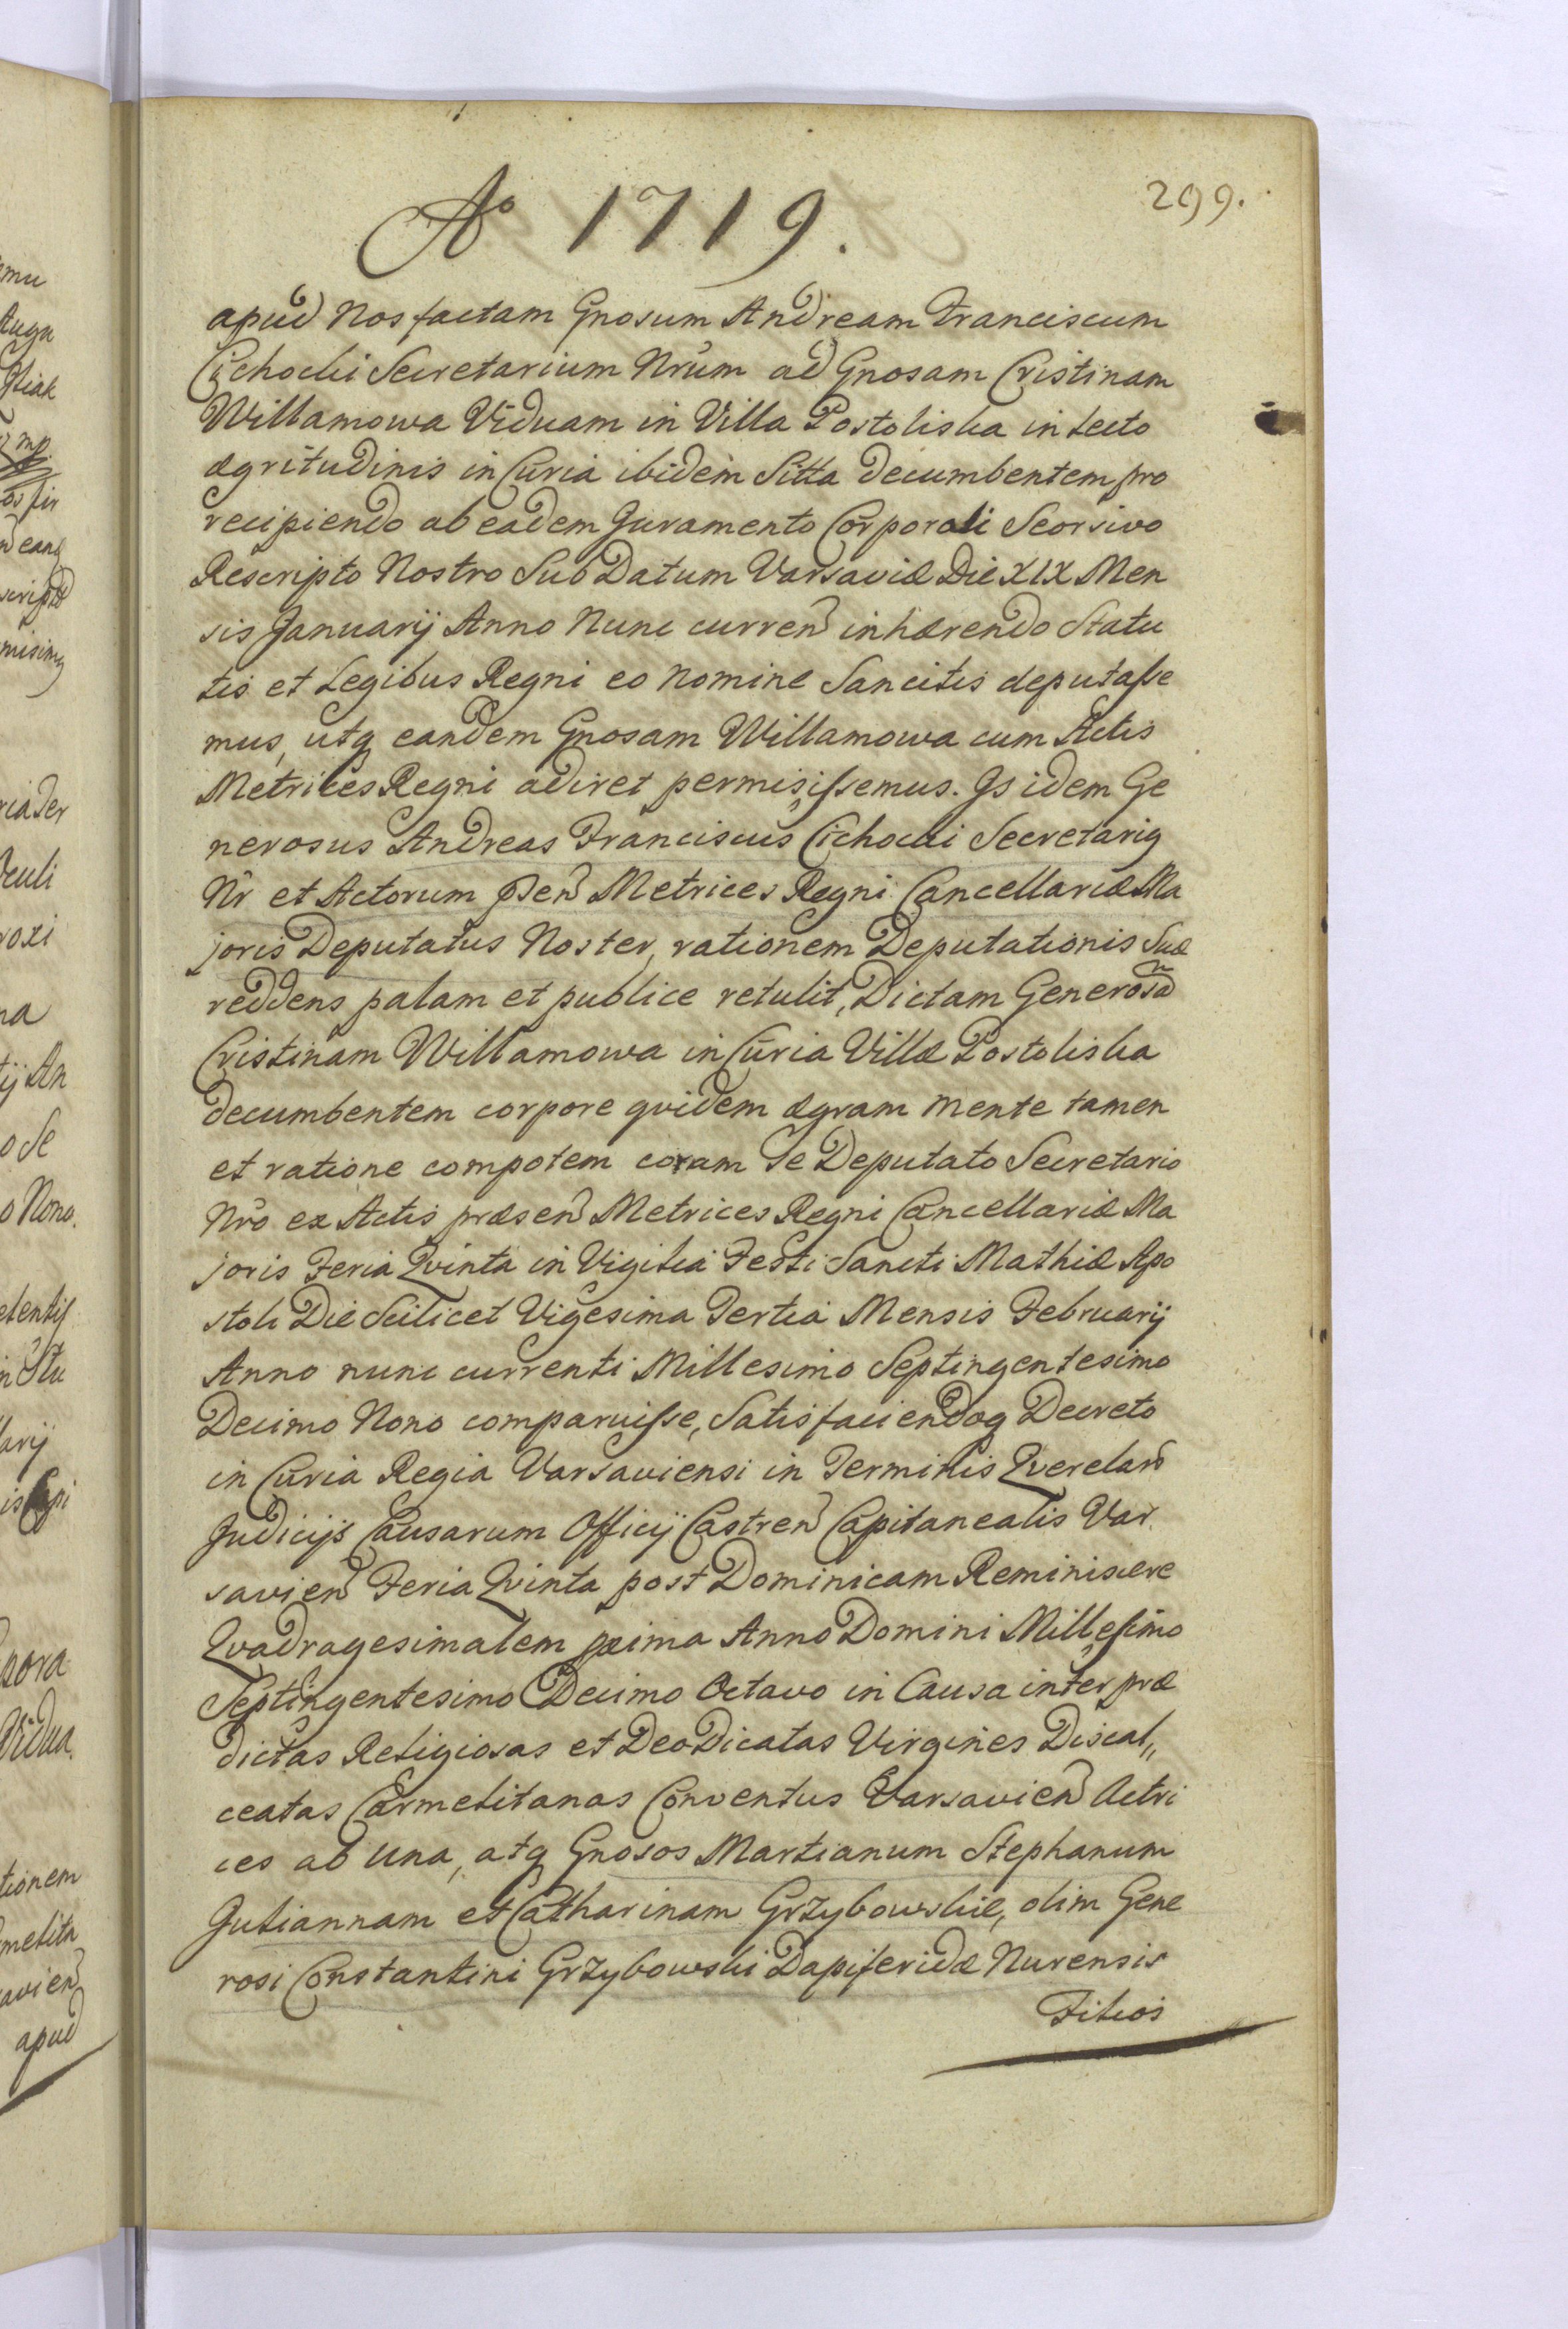 299.
Ao 1719.
apud Nos factam Gnosum Andream Franciscum
Cichocki Secretarium Nrum ad Gnosam Cristinam
Willamowa Viduam in Villa Postoliska in Lecto
ægritudinis in Curia ibidem Sitta decumbentem, pro
recipiendo ab eadem Juramento Corporali Seorsivo
Rescripto Nostro Sub Datum Varsaviæ Die XIX Men
sis Januarij Anno Nunc curren inhærendo Statu
tis et Legibus Regni eo nomine Sancitis deputasse
mus, utq eandem Gnosam Willamowa cum Actis
Metrices Regni adiret permisissemus. Is idem Ge
nerosus Andreas Franciscus Cichocki Secretariq
Nr et Actorum psen Metrices Regni Cancellariæ Ma
joris Deputatus Noster, rationem Deputationis Suæ
reddens palam et publice retulit, Dictam Generosã
Cristinam Willamowa in Curia Villæ Postoliska
decumbentem corpore qvidem ægram mente tamen
et ratione compotem coram Se Deputato Secretario
Nro ex Actis præsen Metrices Regni Cancellariæ Ma
joris Feria Qvinta in Vigilia Festi Sancti Mathiæ Apo
stoli Die Scilicet Vigesima Tertia Mensis Februarij
Anno nunc currenti Millesimo Septingentesimo
Decimo Nono comparuisse, Satisfaciendoq Decreto
in Curia Regia Varsaviensi in Terminis Qverelar
Judicijs Causarum Officij Castren Capitanealis Var
savien Feria Qvinta post Dominicam Reminiscere
Qvadragesimalem pxima Anno Domini Millesimo
Septingentesimo Decimo Octavo in Causa inter præ
dictas Religiosas et Deo Dicatas Virgines Discal„
ceatas Carmelitanas Conventus Varsavien Actri
ces ab una, atq Gnosos Martianum Stephanum
Juliannam et Catharinam Grzybowskie, olim Gene
rosi Constantini Grzybowski Dapiferidæ Nurensis
Filios